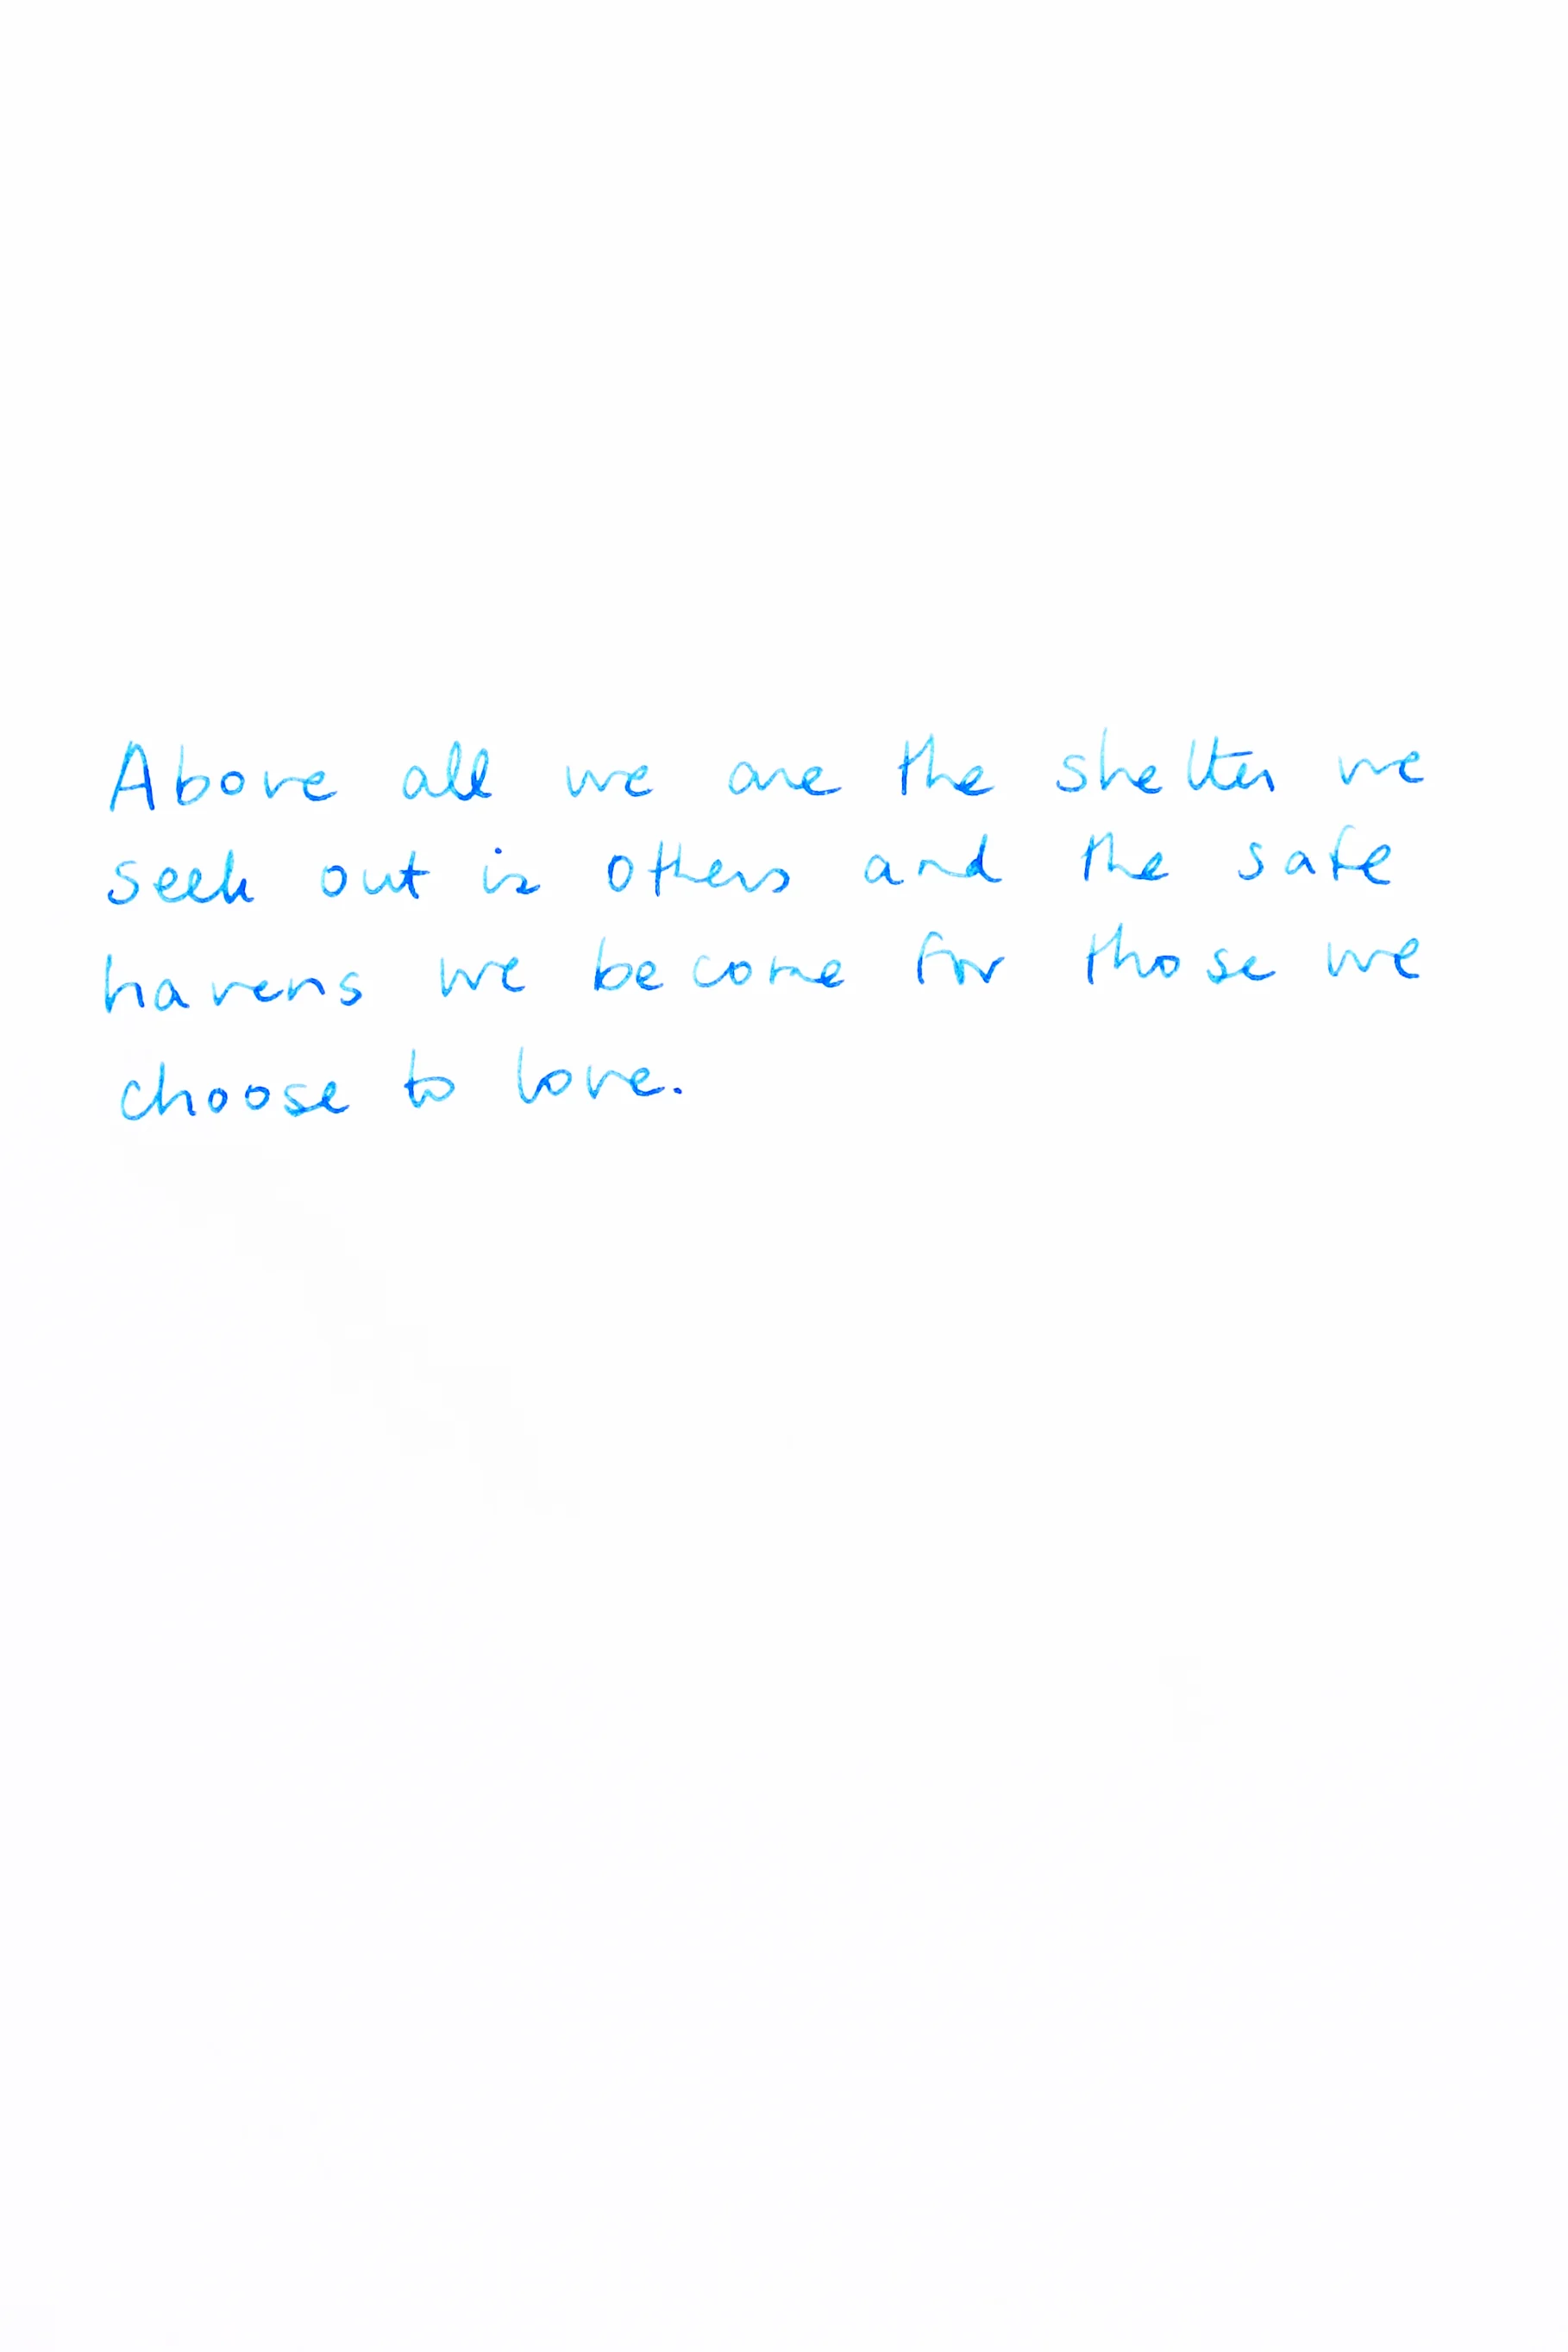 Above all we are the shelter we
seek out in others and the safe
havens we become for those we
choose to love.